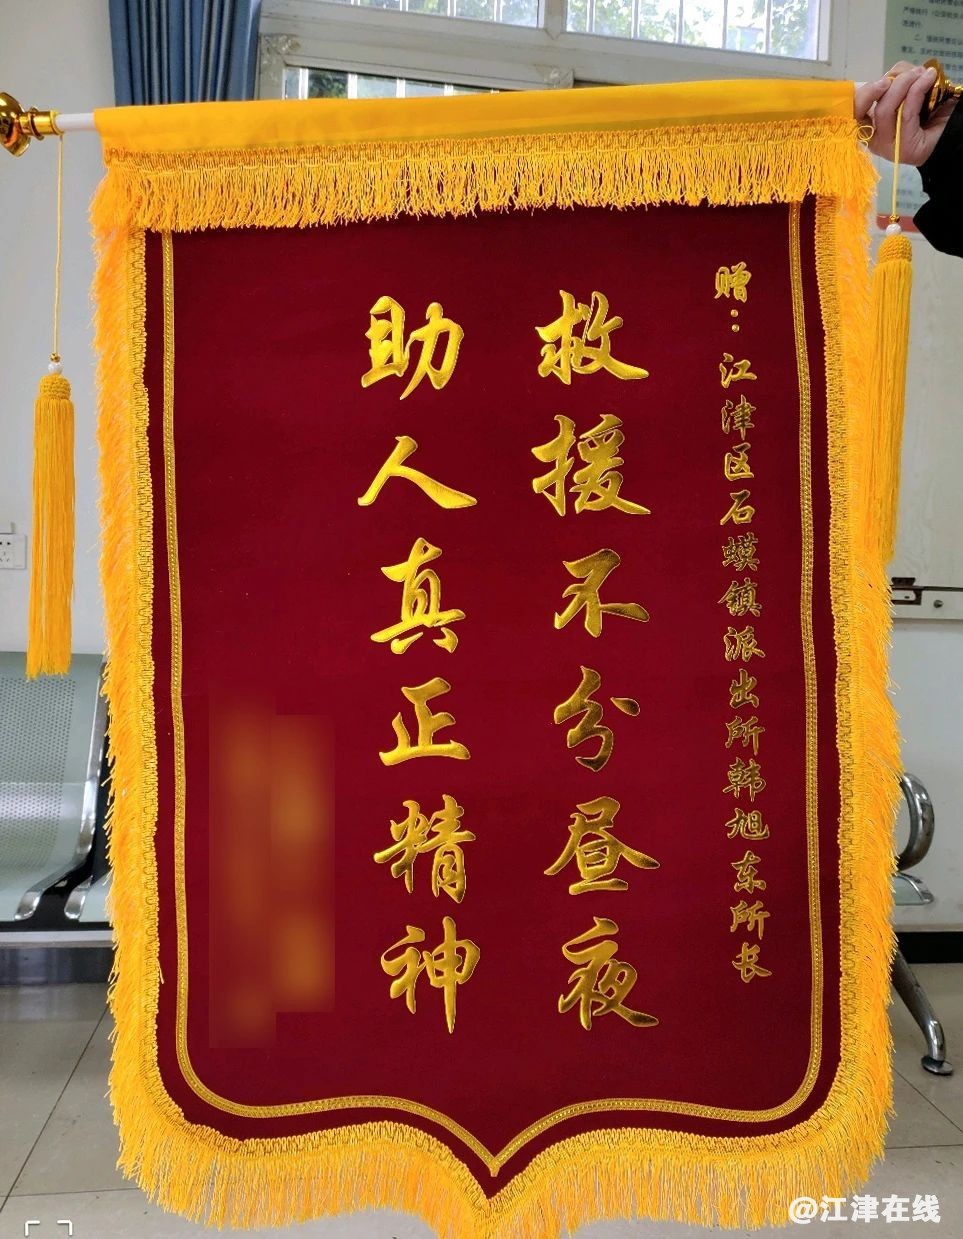 赠：江津区石蟆镇派出所韩旭东所长
救援不分昼夜
助人真正精神
@江津在线